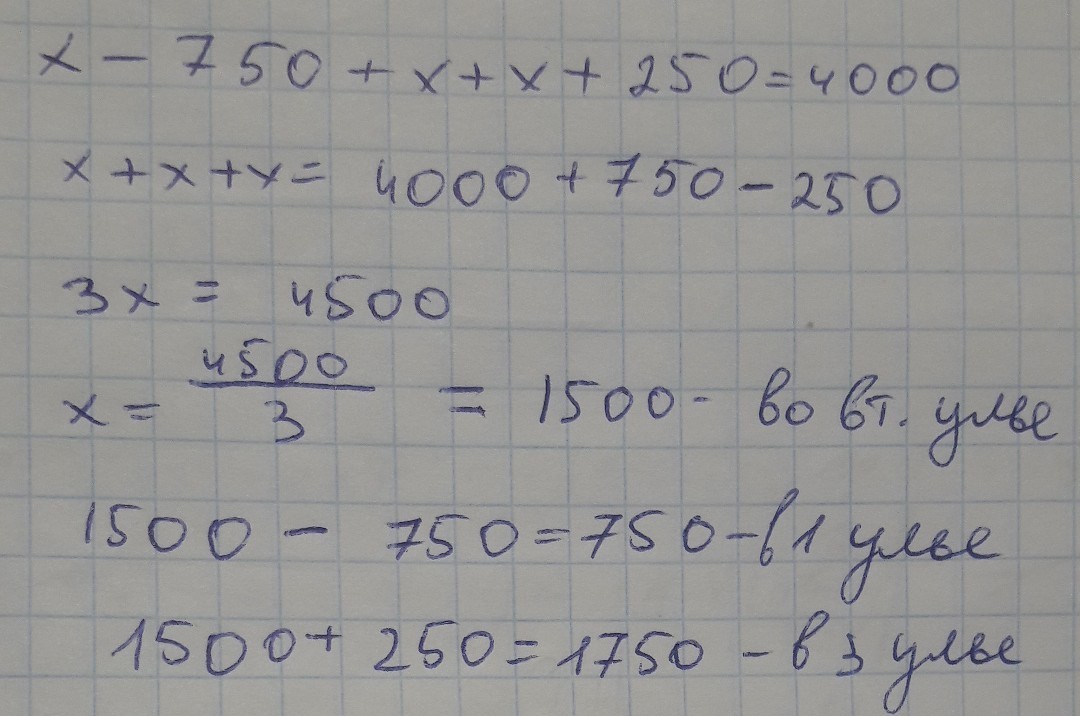 x - 750 + x + x + 250 = 4000
x + x + x = 4000 + 750 - 250
3x = 4500
x = 4500/3 = 1500 - во вт. улье
1500 - 750 = 750 - в 1 улье
1500 + 250 = 1750 - в 3 улье